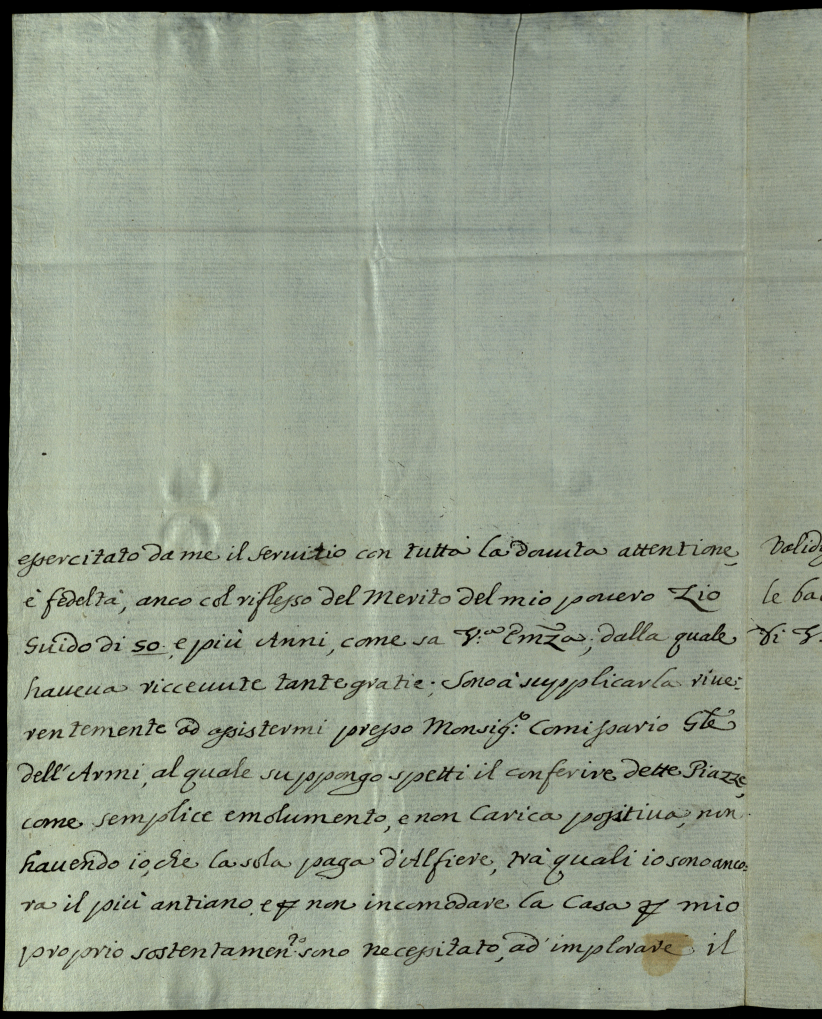 essercitato da me il seruitio con tutta la douuta attentione,
è fedeltà, anco col riflesso del Merito del mio pouero Zio
Guido di 50. e più Anni, come sa V.ra Emza; dalla quale
haueua riceuute tante gratie; Sono à supplicarla riue:
rentemente ad assistermi presso Monsig.r Comissario Gle
dell'Armi, al quale suppongo spetti il conferire dette Piazze,
come semplice emolumento, e non Carica positiua, non
hauendo io, che la sola paga d'Alfiere, trà quali io sono anco:
ra il più antiano, e p non incomodare la Casa p mio
proprio sostentamen.to sono necessitato, ad implorare il
le
di V.